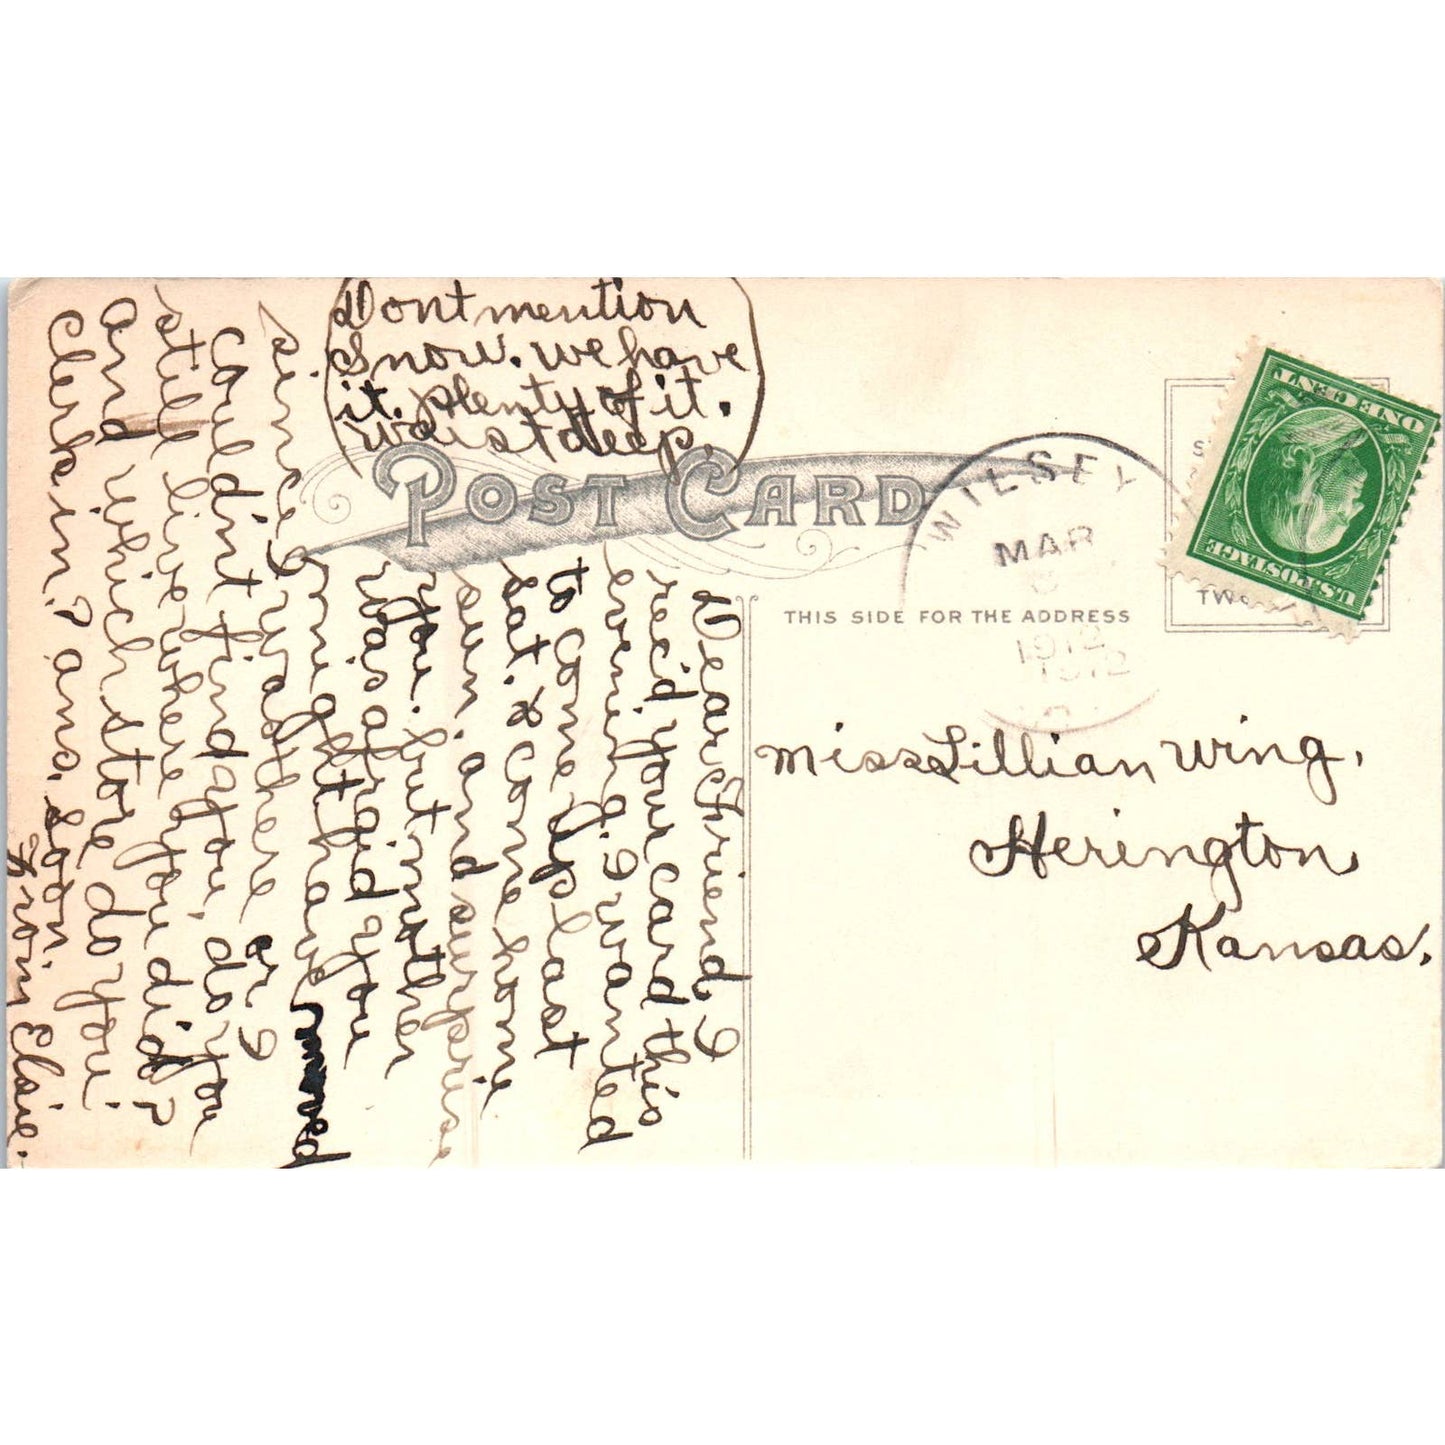 Dont mention
Snow. we have
it. plenty of it.
waist deep.
POST CARD
WILSEY
MAR
1912
1912
THIS SIDE FOR THE ADDRESS
U.S. POSTAGE
ONE CENT
Miss Lillian Wing,
Herington,
Kansas.
Dear Friend I
rec'd your card this
evening. I wanted
to come up last
sat. & come home
sun. and surprise
you. but mother
was afraid you
might have moved
since I was there or I
couldnt find you, do you
still live where you did?
And which store do you
Clerk in? ans. soon.
From Elsie.